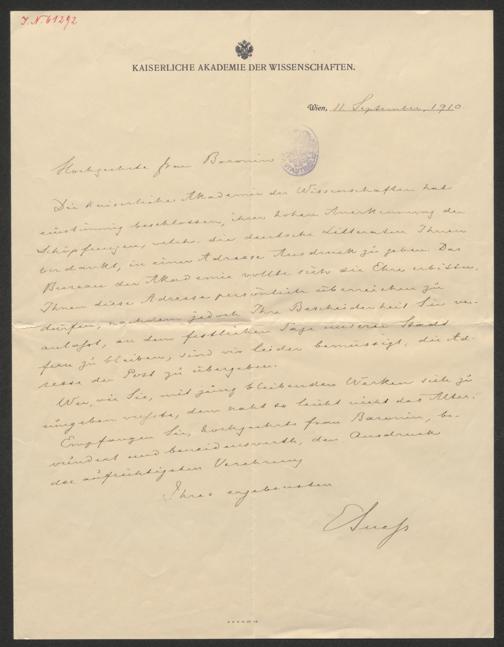 I. N. 61292
KAISERLICHE AKADEMIE DER WISSENSCHAFTEN.
Wien, 11 September 1910
Hochgeehrte Frau Baronin
Die Kaiserliche Akademie der Wissenschaften hat
einstimmig beschlossen, ihrer hohen Anerkennung der
Schöpfungen, welche die deutsche Litteratur Ihnen
verdankt, in einer Adresse Ausdruck zu geben. Das
Bureau der Akademie wollte sich die Ehre erbitten,
Ihnen diese Adresse persönlich überreichen zu
dürfen; nachdem jedoch Ihre Bescheidenheit Sie ver-
anlasst, an dem festlichen Tage unserer Stadt
fern zu bleiben, sind wir leider bemüssigt, die Ad-
resse der Post zu übergeben.
Wer, wie Sie, mit jung bleibenden Werken sich zu
umgeben wusste, dem naht so leicht nicht das Alter.
Empfangen Sie, hochgeehrte Frau Baronin, be-
wundert und beneidenswerth, den Ausdruck
der aufrichtigsten Verehrung
Ihres ergebensten
ESuess